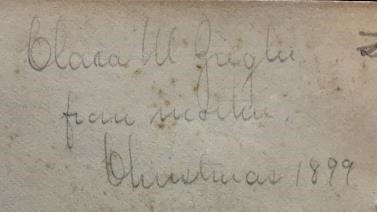 Clara M Ziegler
from mother.
Christmas 1899